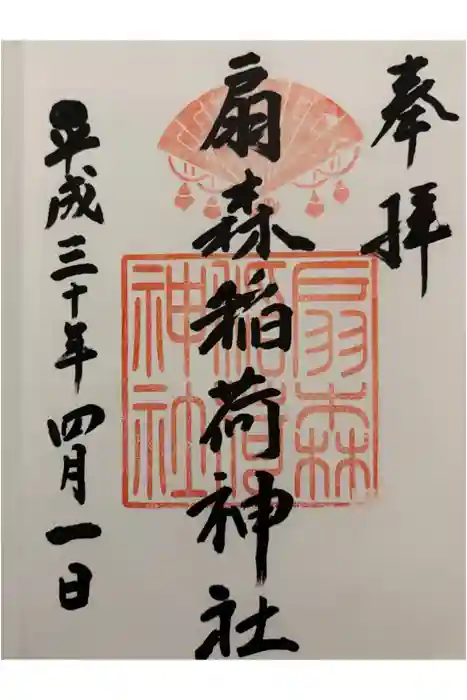 奉拝
扇森稲荷神社
扇森
稲荷
神社
平成三十年四月一日